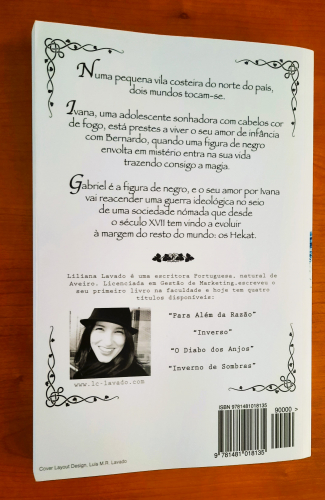 Numa pequena vila costeira do norte do país,
dois mundos tocam-se.
Ivana, uma adolescente sonhadora com cabelos cor
de fogo, está prestes a viver o seu amor de infância
com Bernardo, quando uma figura de negro
envolta em mistério entra na sua vida
trazendo consigo a magia.
Gabriel é a figura de negro, e o seu amor por Ivana
vai reacender uma guerra ideológica no seio
de uma sociedade nómada que desde
o século XVII tem vindo a evoluir
à margem do resto do mundo: os Hekat.
Liliana Lavado é uma escritora Portuguesa, natural de
Aveiro. Licenciada em Gestão de Marketing,escreveu o
seu primeiro livro na faculdade e hoje tem quatro
títulos disponíveis:
"Para Além da Razão"
"Inverso"
"O Diabo dos Anjos"
"Inverno de Sombras"
www.lc-lavado.com
ISBN 9781481018135
90000 >
9 781481 018135
Cover Layout Design, Luis M.R. Lavado